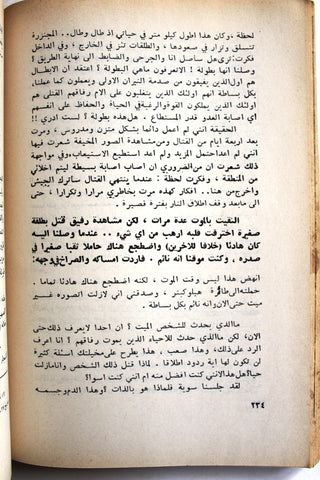 لحظة ، وكان هذا اطول كيلو متر في حياتي اذ طال وطال.. المجنزرة
تتسلق وتزأر في صعودها ، والطلقات تئز في الخارج ، وفي الداخل
فكرت: ترى هل ساصل انا والجرحى والضابط الى نهاية الطريق ؟
وصلنا انها بطولة ! اتعرفون ماهي البطولة ؟ اعتقد ان الابطال
هم اول الذين يفيقون من صدمة النيران الاولى ويعملون كما عملنا،
بكل بساطة انهم اولئك الذين يتغلبون على الام رفاقهم القتلى هم
اولئك الذين يملكون القوة والرغبة في الحياة والحفاظ على انفسهم
أي اصابة العدو قدر المستطاع ، هل هذه بطولة ؟ لست ادري !!
الحقيقة انني لم اعمل دائما بشكل متزن ومدروس ، ومرت
بعد اربعة ايام من القتال ومن مشاهدة الصور المخيفة شعرت فيها
انني لم اعد احتمل المزيد ولم اعد استطيع الاستيعاب، وفي مواجهة
ذلك شعرت ان من الضروري ان اصاب اصابة بسيطة ليتم اخلائي
من المنطقة ، وفكرت لحظة : عندما ينتهي القتال سأترك الجيش
واخرج من هنا .. افكار كهذه مرت بخاطري مرارا وتكرارا ، حتى
الى مابعد وقف اطلاق النار بفترة قصيرة .
التقيت بالموت عدة مرات ، لكن مشاهدة رفيق قتل بطلقة
صغيرة اخترقت قلبه ارهب من اي شيء .. عندما وصلنا اليه
كان هادئا ( خلافا للآخرين ) واضطجع هناك حاملا ثقبا صغيرا في
صدره ، وكنت موقنا انه نائم . فاردت امساكه والصراخ في وجهه:
انهض هذا ليس وقت الموت ، لكنه اضطجع هناك هادئا تماما .
حملته الى طائرة هيلوكبتر ، وصدقني اني لازلت اتصوره غير
ميت حتى الان وانه نائم بكل بساطة .
ما الذي يحدث للشخص الميت ؟ ان احدا لايعرف ذلك حتى
الان، لكن ما الذي يحدث للاحياء الذين يموت رفاقهم ؟ انا اعرف
الرد على ذلك، وهذا صعب ، هذا يطرح على مخيلتك اسئلة كثيرة
لا يكون لها اية ردود اطلاقا . لماذا قتل ذلك الشخص وانا مازلت
حيا؟ هل هذا لانني كنت افضل منه ام انني كنت اسوأ؟
لقد جلسنا سوية فلماذا هو بالذات ؟ وهذا الدم وجسمه
٢٣٤